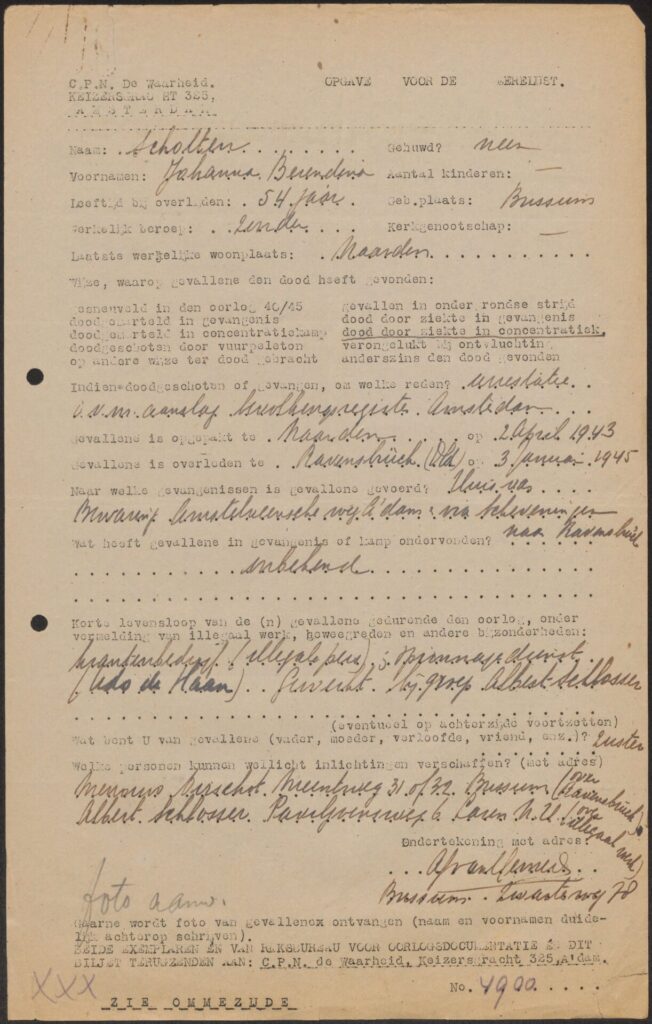 C.P.N. De Waarheid. OPGAVE VOOR DE EERELIJST.
KEIZERSGRACHT 325,
AMSTERDAM
Naam: Scholten Gehuwd? neen
Voornamen: Johanna Berendina Aantal kinderen: —
Leeftijd bij overlijden: 54 jaar Geb.plaats: Bussum
Werkelijk beroep: zonder Kerkgenootschap: —
Laatste werkelijke woonplaats: Naarden
Wijze, waarop gevallene den dood heeft gevonden:
gesneuveld in den oorlog 40/45 gevallen in ondergrondse strijd
doodgemarteld in gevangenis dood door ziekte in gevangenis
doodgemarteld in concentratiekamp dood door ziekte in concentratiek.
doodgeschoten door vuurpeleton verongelukt bij ontvluchting
op andere wijze ter dood gebracht anderszins den dood gevonden
Indien doodgeschoten of gevangen, om welke reden? arrestatie
i.v.m. aanslag bevolkingsregister Amsterdam
Gevallene is opgepakt te Naarden op 2 April 1943
Gevallene is overleden te Ravensbrück (Dld) op 3 Januari 1945
Naar welke gevangenissen is gevallene gevoerd? Huis van
Bewaring A'dam via Scheveningen
naar Ravensbrück
Wat heeft gevallene in gevangenis of kamp ondervonden?
onbekend
Korte levensloop van de (n) gevallene gedurende den oorlog, onder
vermelding van illegaal werk, beweegreden en andere bijzonderheden:
krantenbedrijf (illegale pers); spionnagedienst
(Ado de Haan). Gewerkt bij groep Albert Schlosser
(eventueel op achterzijde voortzetten)
Wat bent U van gevallene (vader, moeder, verloofde, vriend, enz.)? zuster
Welke personen kunnen wellicht inlichtingen verschaffen? (met adres)
Mevrouw Meentweg 31 of 32 Bussum (over Ravensbrück)
Albert Schlosser. Laren N.H. (over illegaal werk)
Ondertekening met adres:
Bussum. Zwarteweg 78
foto aanw.
Gaarne wordt foto van gevallenex ontvangen (naam en voornamen duide-
lijk achterop schrijven).
BEIDE EXEMPLAREN EN VAN RIJKSBUREAU VOOR OORLOGSDOCUMENTATIE ÉN DIT
BILJET TERUGZENDEN AAN: C.P.N. de Waarheid, Keizersgracht 325, A'dam.
XXX
No. 4900.
ZIE OMMEZIJDE